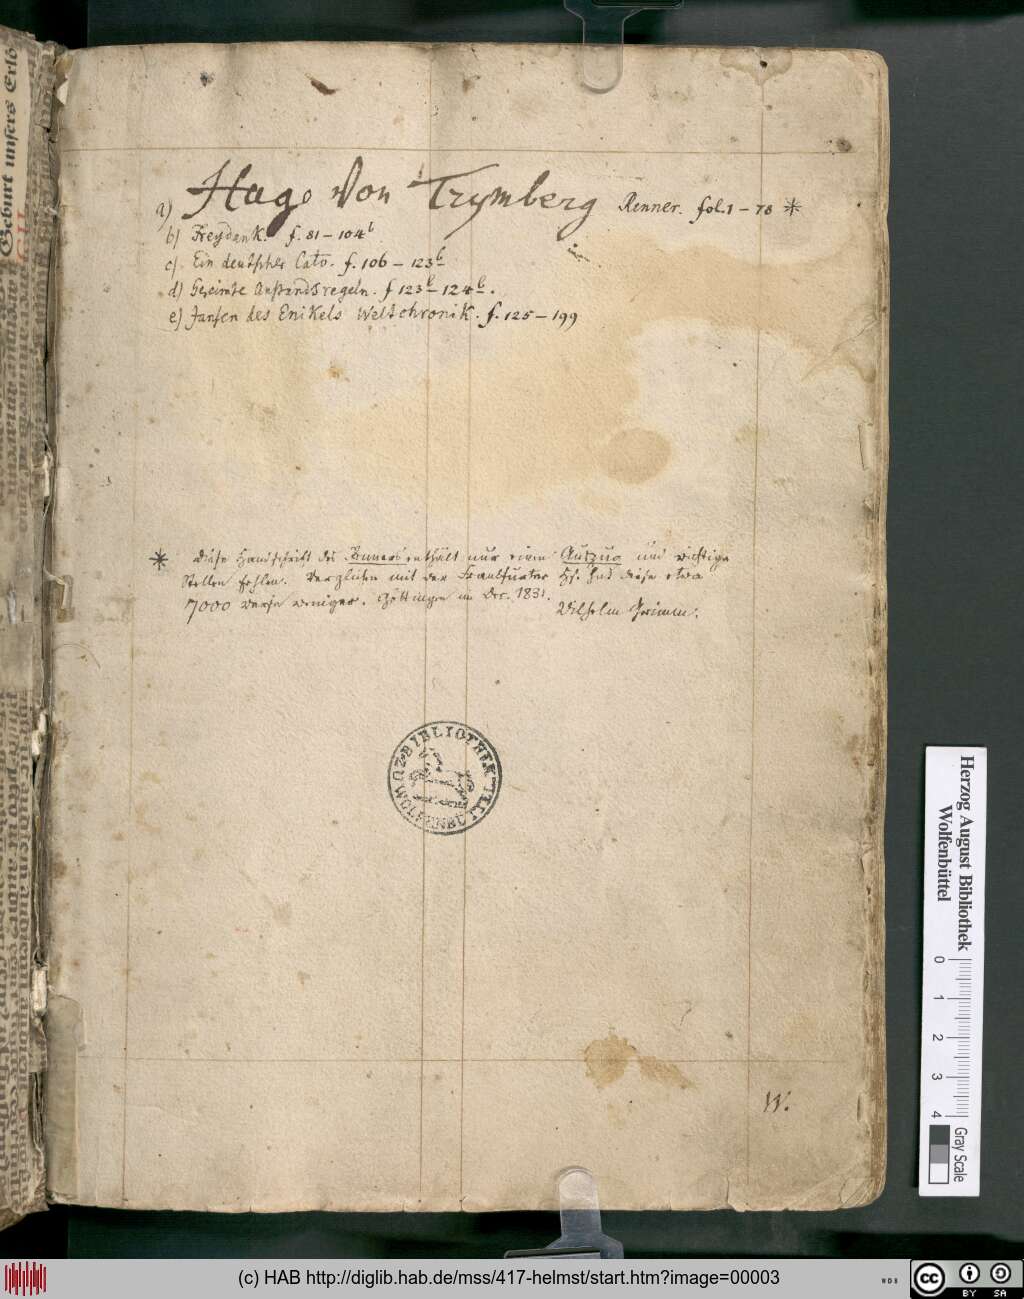 a) Hugo Von Trymberg Renner. fol. 1 – 78 *
b) Freydank. f. 81 – 104b
c) Ein deutscher Cato. f. 106 – 123b
d) Gereimte Anstandsregeln. f 123b – 124b.
e) Jansen des Enikels Weltchronik. f. 125 – 199
* Diese Handschrift des Renners enthält nur einen Auszug und wichtige
Stellen fehlen. Verglichen mit der Frankfurter Hs. hat diese etwa
7000 Verse weniger. Göttingen im Dec. 1831.
Wilhelm Grimm.
BIBLIOTHEK
ZU WOLFENBÜTTEL
W.
Geburt unsers Erlö
Herzog August Bibliothek
Wolfenbüttel
0 1 2 3 4
Gray Scale
(c) HAB http://diglib.hab.de/mss/417-helmst/start.htm?image=00003
WDB
cc BY SA